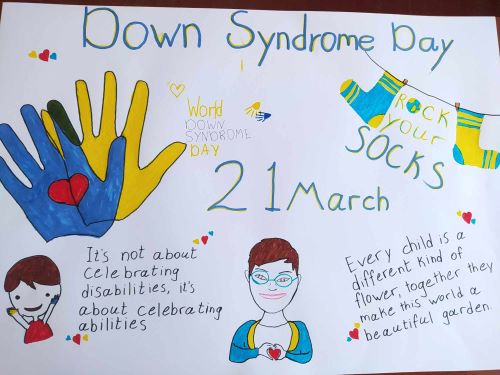 Down Syndrome Day
World
DOWN
SYNDROME
DAY
ROCK
your
SOCKS
21 March
It's not about
celebrating
disabilities, it's
about celebrating
abilities
Every child is a
different kind of
flower, together they
make this world a
beautiful garden.